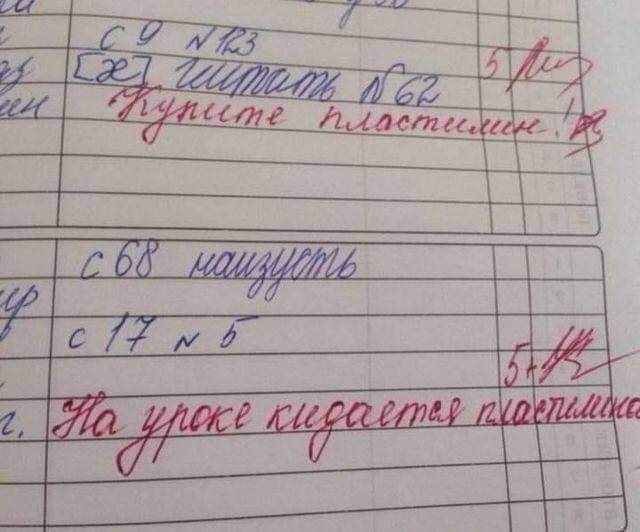 с 9 №123
[ж] читать №62 5
Купите пластилин!
с 68 наизусть
с 17 № 5
5+
г. На уроке кидается пластилино